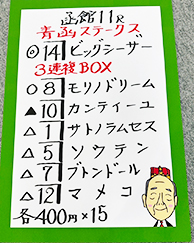 函館11R
青函ステークス
◎14 ビッグシーザー
3連複BOX
○8 モリノドリーム
▲10 カンティーユ
△1 サトノラムセス
△5 ソウテン
△7 ブトンドール
△12 マメコ
各400円×15